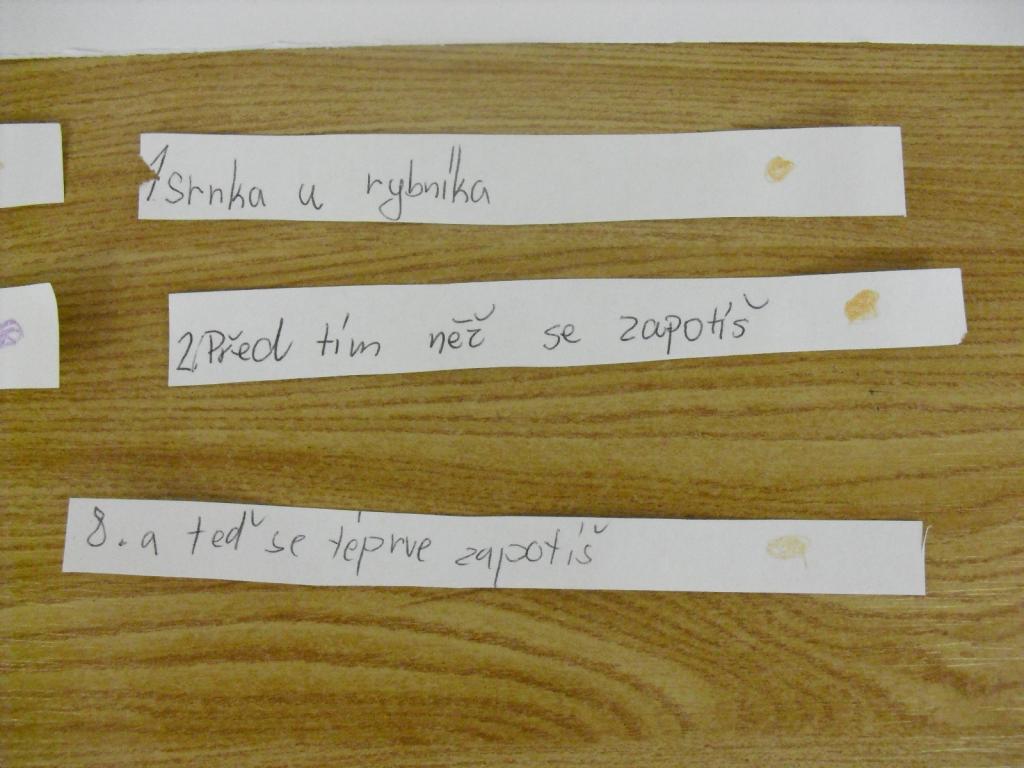 1. Srnka u rybníka
2. Před tím něž se zapotíš
8. a teď se téprve zapotíš